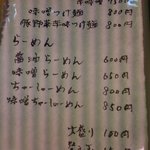 味噌つけ麺 800円
豚野菜辛味つけ麺 900円
らーめん
醤油らーめん 600円
味噌らーめん 650円
ちゃーしゅーめん 800円
味噌ちゃーしゅーめん 850円
大盛り 100円